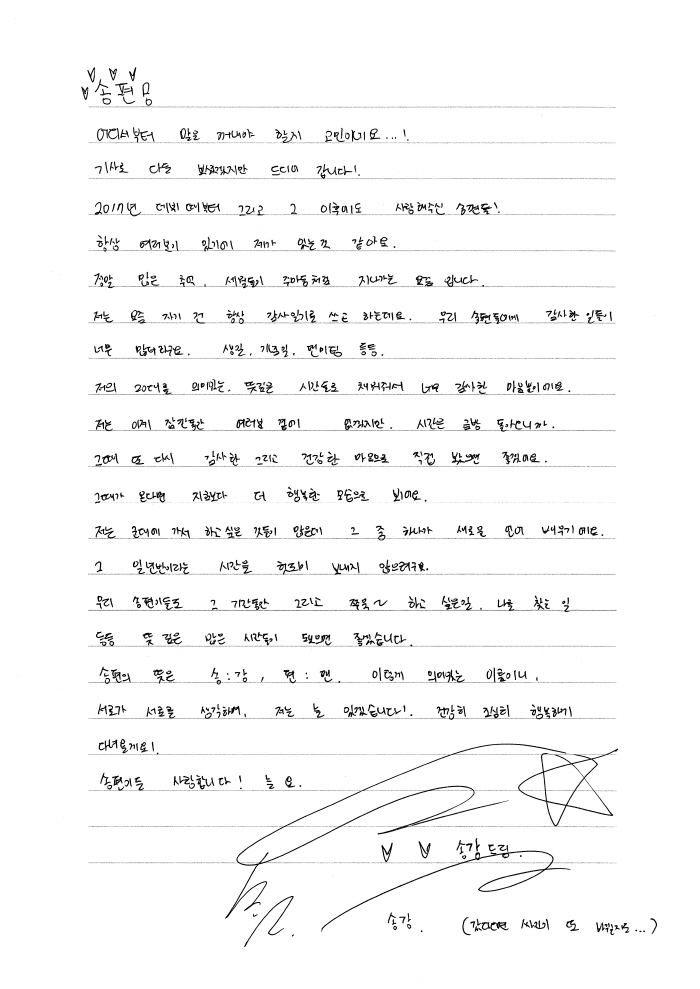 송편💌
어디서부터 말을 꺼내야 할지 고민이기요...!
기사로 다들 보셨겠지만 드디어 갑니다!
2017년 데뷔 때부터 그리고 그 이후에도 사랑해주신 송편들!
항상 여러분이 있기에 제가 있는 것 같아요.
정말 많은 추억, 세월들이 주마등처럼 지나가는 요즘 입니다.
저는 요즘 자기 전 항상 감사일기를 쓰고 하는데요. 우리 송편들에게 감사한 일들이
너무 많더라구요. 생일, 기념일, 팬미팅 등등.
저의 20대를 의미있는, 뜻깊은 시간들로 채워줘서 너무 감사한 마음뿐이에요.
저는 이제 잠깐동안 여러분 곁에 없겠지만, 시간은 금방 돌아오니까.
그때 또 다시 감사한 그리고 건강한 마음으로 직접 봤으면 좋겠어요.
그때가 온다면 지금보다 더 행복한 모습으로 봐요.
저는 군대에 가서 하고 싶은 것들이 많은데 그 중 하나가 새로운 언어 배우기에요.
그 일년반이라는 시간을 헛되이 보내지 않으려구요.
우리 송편이들도 그 기간동안 그리고 쭈욱~ 하고 싶은일, 나를 찾는 일
등등 뜻 깊은 많은 시간들이 됐으면 좋겠습니다.
송편의 뜻은 송:강, 편:팬. 이렇게 의미있는 이름이니,
서로가 서로를 생각하며, 저는 늘 있겠습니다! 건강히 조심히 행복하게
다녀올게요!
송편이들 사랑합니다! 늘요.
송강드림.
송강. (갔다오면 싸인이 또 바뀔지도...)